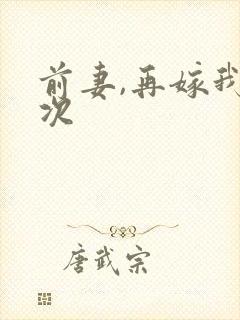 前妻,再嫁我
次
唐武宗